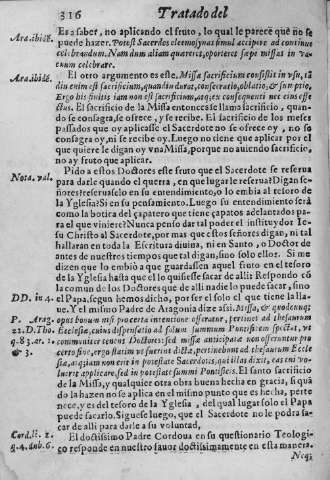 316 Tratado del
Es a saber, no aplicando el fruto, lo qual le parece que no se
Ara. ibidē. puede hazer. Potest Sacerdos eleemosynas simul accipere ad continue
celebrandum. Nam dum aliam quæreret, oporteret sæpe missas in vanum
celebrare.
Ara. ibidē. El otro argumento es este. Missa sacrificium consistit in vsu, tādiu
enim est sacrificium, quandiu durat, consecratio, oblatio, & sumptio,
Ergo his finitis iam non est sacrificium, atq; ex consequenti nec eius effectus.
El sacrificio de la Missa entonces se llama sacrificio, quando
se consagra, se ofrece, y se recibe. El sacrificio de los meses
passados que oy aplicasse el Sacerdote no se ofrece oy, no se
consagra oy, ni se recibe oy. Luego no tiene que aplicar por el
que quiere le digan oy vna Missa, porque no auiendo sacrificio,
no ay fruto que aplicar.
Nota. val. Pido a estos Doctores este fruto que el Sacerdote se reserua
para darle quando el querra, en que lugar le reserua? Digan señores?
reserua solo en su entendimiento, o lo embia al tesoro de
la Yglesia? Si en su pensamiento. Luego su entendimiento será
como la botica del çapatero que tiene çapatos adelantados para
el que viniere? Nunca penso dar tal poder el instituydor Iesu
Christo al Sacerdote, por mas que estos señores digan, ni tal
hallaran en toda la Escritura diuina, ni en Santo, o Doctor de
antes de nuestros tiempos que tal digan, sino solo ellos. Si me
dizen que lo embiò a que guardassen aquel fruto en el tesoro
de la Yglesia hasta que el lo quisiesse sacar de alli: Respondo cō
la comun de los Doctores que de alli nadie lo puede sacar, sino
DD. in 4. el Papa, segun hemos dicho, por ser el solo el que tiene la llaue.
P. Arag. Y el mismo Padre de Aragonia dize assi. Missa, & quodcunq;
opus bonum nisi pro certa intentione offeratur, pertinet ad thesaurum
22. D. Tho. Ecclesiæ, cuius dispensatio ad solum summum Pontificem spectat, vt
q. 83. ar. 1. communiter tenent Doctores: sed missa anticipata non offeruntur pro
& 3. certo fine, ergo statim vt fuerint dictæ, pertinebunt ad thesaurum Ecclesiæ,
atq; iam non erit in potestate Sacerdotis, qui illas dixit, cas cui voluerit
applicare, sed in potestate summi Pontificis. El santo sacrificio
de la Missa, y qualquier otra obra buena hecha en gracia, si quādo
la hazen no se aplica en el mismo punto que es hecha, pertenece,
y es del tesoro de la Yglesia, del qual lugar solo el Papa
puede sacarlo. Siguese luego, que el Sacerdote no le podra sacar
de alli para darle a su voluntad,
Cord. li. 1. El doctissimo Padre Cordoua en su questionario Teologico
q. 4. dub. 6. responde en nuestro fauor doctissimamente en esta manera.
Neq;